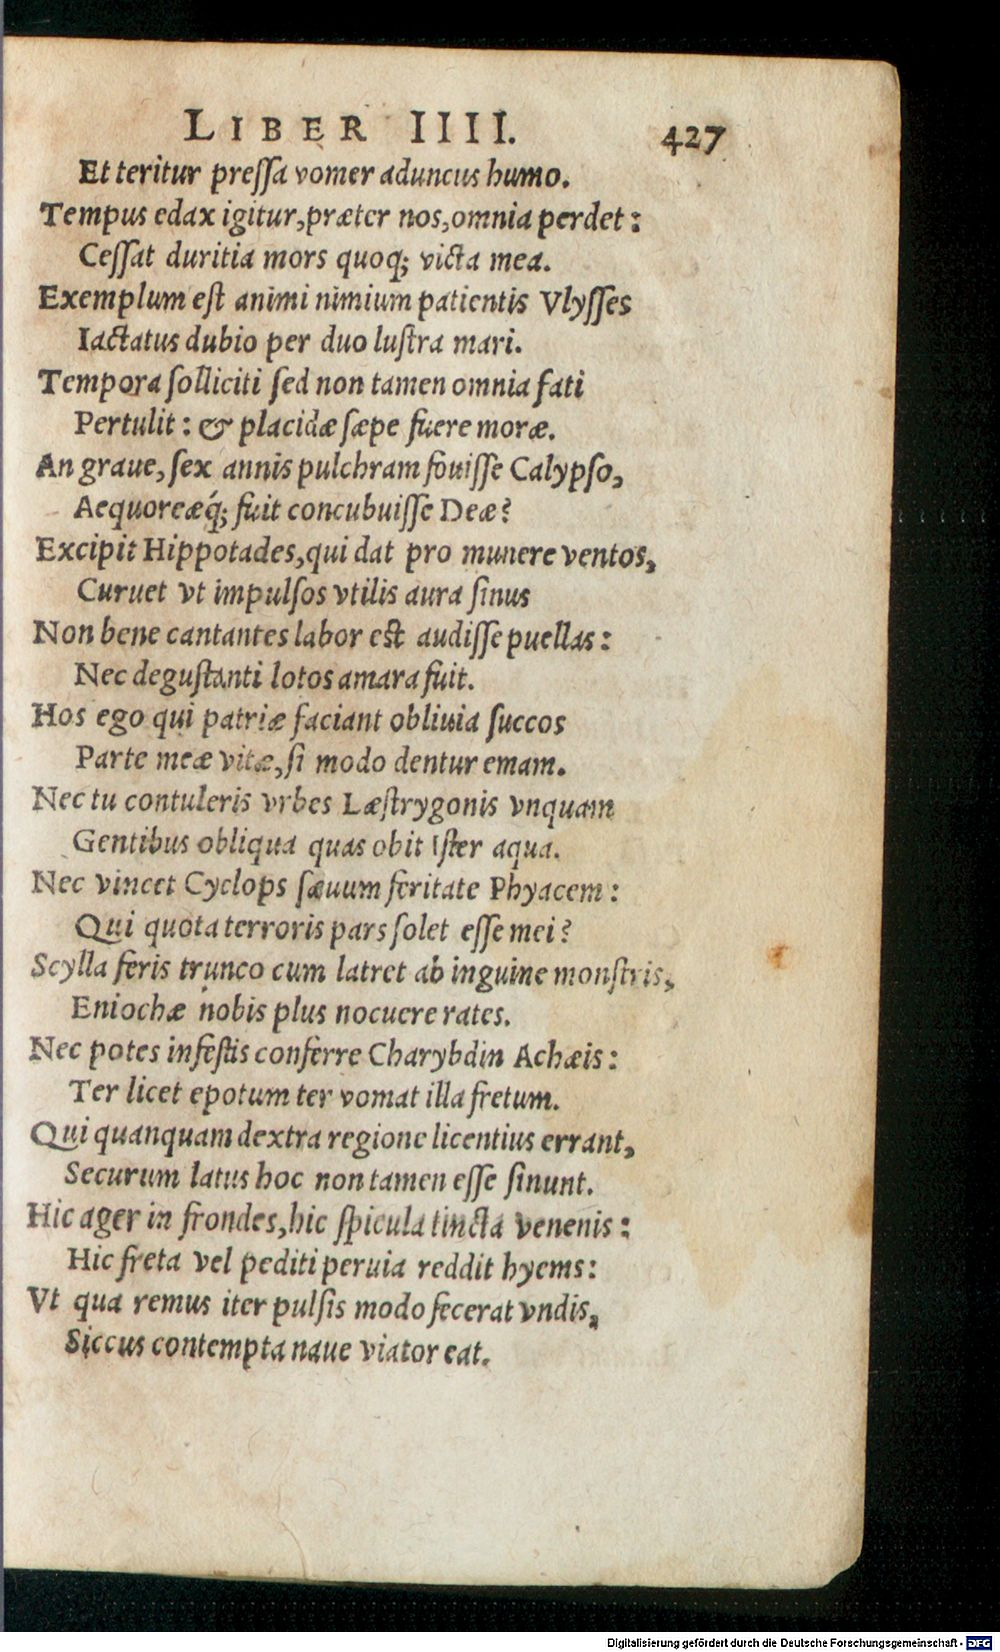 LIBER IIII. 427
Et teritur preſſa vomer aduncus humo.
Tempus edax igitur, præter nos, omnia perdet:
Ceſſat duritia mors quoq; victa mea.
Exemplum eſt animi nimium patientis Vlyſſes
Iactatus dubio per duo luſtra mari.
Tempora ſolliciti ſed non tamen omnia fati
Pertulit: & placidæ ſæpe fuere moræ.
An graue, ſex annis pulchram fouiſſe Calypſo,
Aequoreæq́; fuit concubuiſſe Deæ?
Excipit Hippotades, qui dat pro munere ventos,
Curuet vt impulſos vtilis aura ſinus
Non bene cantantes labor eſt audiſſe puellas:
Nec deguſtanti lotos amara fuit.
Hos ego qui patriæ faciant obliuia ſuccos
Parte meæ vitæ, ſi modo dentur emam.
Nec tu contuleris vrbes Læſtrygonis vnquam
Gentibus obliqua quas obit Iſter aqua.
Nec vincet Cyclops ſæuum feritate Phyacem:
Qui quota terroris pars ſolet eſſe mei?
Scylla feris trunco cum latret ab inguine monſtris,
Eniochæ nobis plus nocuere rates.
Nec potes infeſtis conferre Charybdin Achæis:
Ter licet epotum ter vomat illa fretum.
Qui quanquam dextra regione licentius errant,
Securum latus hoc non tamen eſſe ſinunt.
Hic ager in frondes, hic ſpicula tincta venenis:
Hic freta vel pediti peruia reddit hyems:
Vt qua remus iter pulſis modo fecerat vndis,
Siccus contempta naue viator eat.
Digitalisierung gefördert durch die Deutsche Forschungsgemeinschaft - DFG